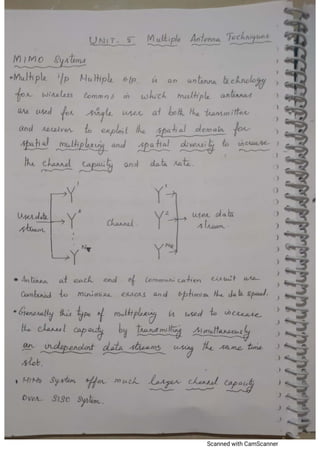 UNIT-5 Multiple Antenna Techniques
MIMO Systems
• Multiple i/p Multiple o/p is an antenna technology
for wireless Comms in which multiple antennas
are used for single user at both the transmitter
and receiver to exploit the spatial domain for
spatial multiplexing and spatial diversity to increase
the channel capacity and data rate.
User data stream
1
2
Channel
1
2
user data stream
• Antenna at each end of Communication circuit are
Combined to minimize errors and optimize the data speed.
• Generally this type of multiplexing is used to increase
the channel capacity by transmitting simultaneously
an independent data streams using the same time
slot.
• MIMO System offer much larger channel capacity
Over SISO System.
Scanned with CamScanner